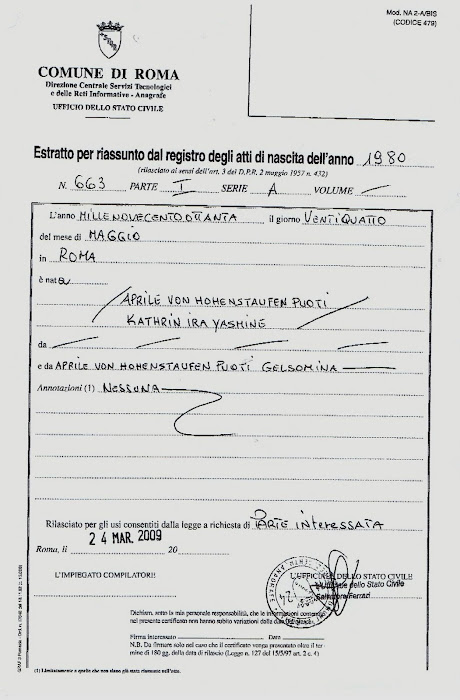 Mod. NA 2-A/BIS
(CODICE 479)
S.P.Q.R.
COMUNE DI ROMA
Direzione Centrale Servizi Tecnologici
e delle Reti Informative - Anagrafe
UFFICIO DELLO STATO CIVILE
Estratto per riassunto dal registro degli atti di nascita dell'anno 1980
(rilasciato ai sensi dell'art. 3 del D.P.R. 2 maggio 1957 n. 432)
N. 663 PARTE I SERIE A VOLUME
L'anno MILLENOVECENTOOTTANTA il giorno VENTIQUATTO
del mese di MAGGIO
in ROMA
è nata
APRILE VON HOHENSTAUFEN PUOTI
KATHRIN IRA YASMINE
da
e da APRILE VON HOHENSTAUFEN PUOTI GELSOMINA
Annotazioni (1) NESSUNA
Rilasciato per gli usi consentiti dalla legge a richiesta di PARTE INTERESSATA
24 MAR. 2009
Roma, lì 20
L'IMPIEGATO COMPILATORE
L'UFFICIALE DELLO STATO CIVILE
dello Stato Civile
Salvatore Ferrari
Dichiaro, sotto la mia personale responsabilità, che le informazioni contenute
nel presente certificato non hanno subito variazioni dalla data di rilascio.
Firma Interessato Data
N.B. Da firmare solo nel caso che il certificato venga presentato oltre il ter-
mine di 180 gg. dalla data di rilascio (Legge n. 127 del 15/5/97 art. 2 c. 4)
(1) Limitatamente a quelle che non siano già state riassunte nell'atto.